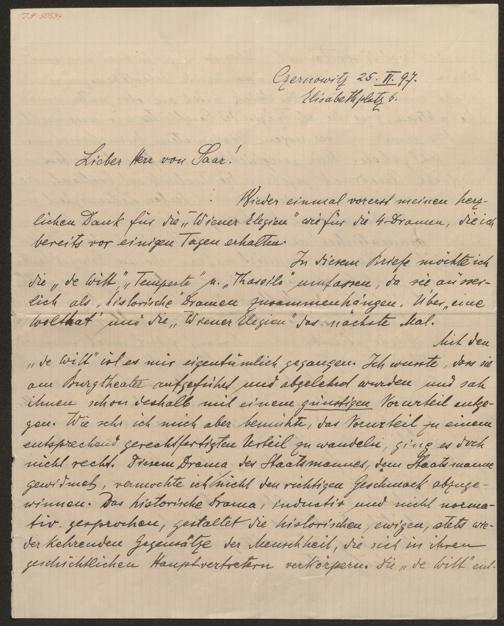 Czernowitz 25. II. 97.
Elisabethplatz 6.
Lieber Herr von Saar!
Wieder einmal vorerst meinen herz-
lichen Dank für die „Wiener Elegien" wie für die 4 Dramen, die ich
bereits vor einigen Tagen erhalten.
In diesem Briefe möchte ich
die „de Witt", „Tempesta" u. „Thassilo" umfassen, da sie äusser-
lich als historische Dramen zusammenhängen. Über „eine
Wolthat" und die „Wiener Elegien" das nächste Mal.
Mit den
„de Witt" ist es mir eigentümlich gegangen. Ich wusste, dass sie
am Burgtheater aufgeführt und abgelehnt wurden und sah
ihnen schon deshalb mit einem günstigen Vorurteil entge-
gen. Wie sehr ich mich aber bemühte, das Vorurteil zu einem
entsprechend gerechtfertigten Urteil zu wandeln, ging es doch
nicht recht. Diesem Drama des Staatsmannes, dem Staatsmanne
gewidmet, vermochte ich nicht den richtigen Geschmack abzuge-
winnen. Das historische Drama, inductiv und nicht norma-
tiv gesprochen, gestaltet die historischen, ewigen, stets wie-
derkehrenden Gegensätze der Menschheit, die sich in ihren
geschichtlichen Hauptvertretern verkörpern. Die „de Witt" ent-